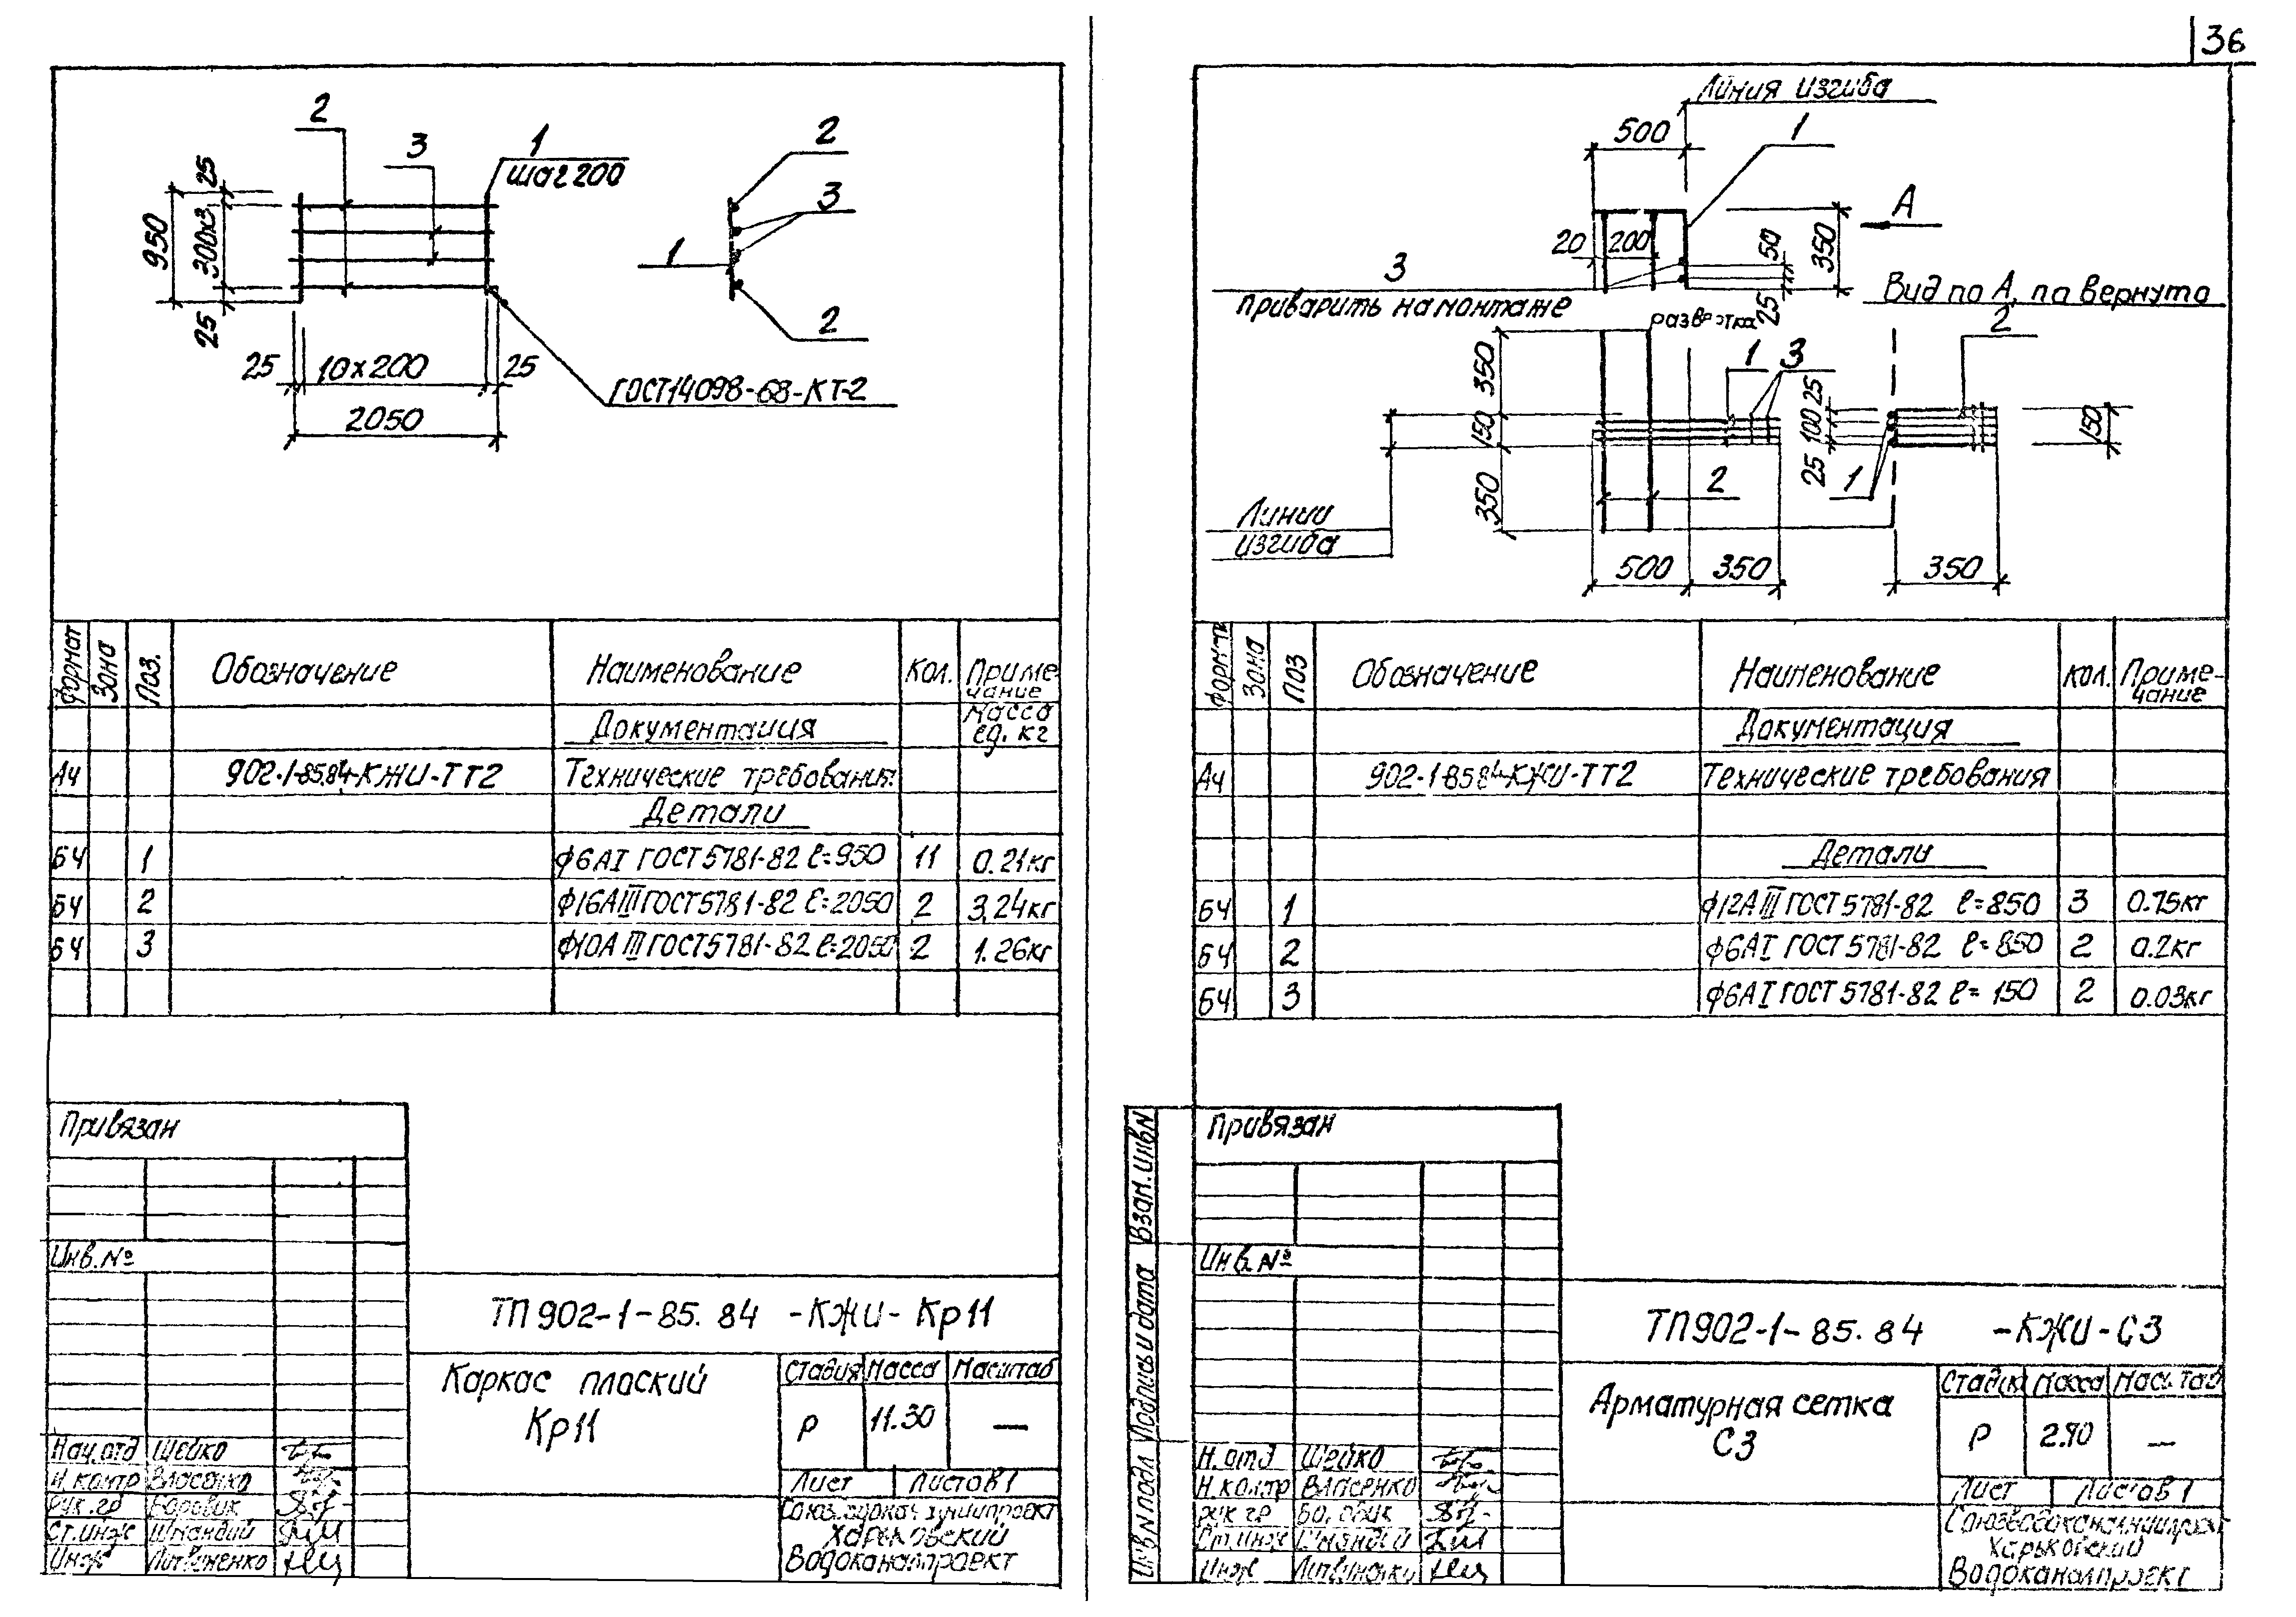 36
2
3
1
шаг 200
25
300х3
950
25
25
10х200
25
2050
ГОСТ14098-68-КТ-2
2
3
1
2
Линия изгиба
500
1
А
20
200
50
350
25
3
приварить на монтаже
Вид по А, повернуто
развертка
350
150
350
1
3
2
2
25
100
25
150
1
Линии
изгиба
500
350
350
Формат
Зона
Поз.
Обозначение
Наименование
Кол.
Приме-
чание
Документация
Масса
ед. кг
А4
902-1-85.84-КЖИ-ТТ2
Технические требования
Детали
БЧ 1 ф6АI ГОСТ5781-82 ℓ=950 11 0.21кг
БЧ 2 ф16АIII ГОСТ5781-82 ℓ=2050 2 3,24кг
БЧ 3 ф10АIII ГОСТ5781-82 ℓ=2050 2 1.26кг
Привязан
Инв.№
ТП902-1-85.84 -КЖИ-Кр11
Каркас плоский
Кр11
Стадия Масса Масштаб
Р 11.30 —
Лист Листов 1
Нач.отд Шейко
Н.контр Власенко
Рук.гр Боровик
Ст.инж
Инж Литвиненко
Харьковский
Водоканалпроект
Формат
Зона
Поз
Обозначение
Наименование
Кол.
Приме-
чание
Документация
А4
902-1-85.84-КЖИ-ТТ2
Технические требования
Детали
БЧ 1 ф12АIII ГОСТ5781-82 ℓ=850 3 0.75кг
БЧ 2 ф6АI ГОСТ5781-82 ℓ=850 2 0.2кг
БЧ 3 ф6АI ГОСТ5781-82 ℓ=150 2 0.03кг
Взам.инв№
Подпись и дата
Инв№подл
Привязан
Инв.№
ТП902-1-85.84 -КЖИ-С3
Арматурная сетка
С3
Стадия Масса Масштаб
Р 2.90 —
Лист Листов 1
Н.отд Шейко
Н.контр Власенко
Рук.гр
Ст.инж
Инж
Союзводоканалниипроект
Харьковский
Водоканалпроект